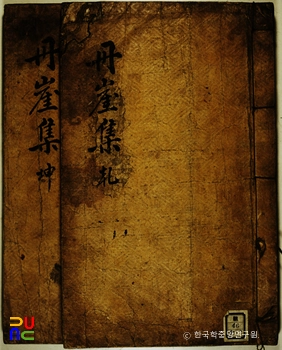 丹崖集 乾
丹崖集 坤
ⓒ 한국학중앙연구원